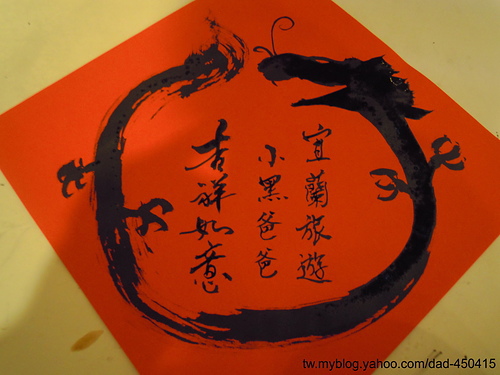 宜蘭旅遊
小黑爸爸
吉祥如意
tw.myblog.yahoo.com/dad-450415